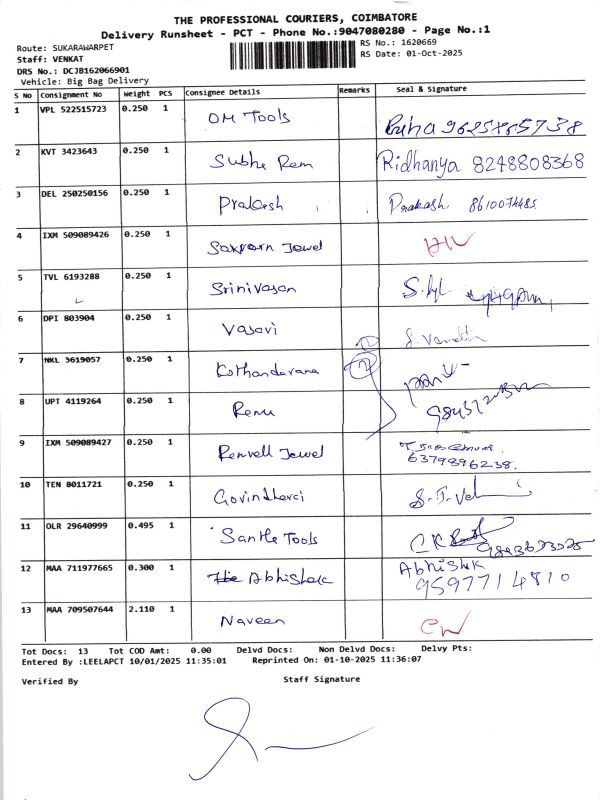 THE PROFESSIONAL COURIERS, COIMBATORE
Delivery Runsheet - PCT - Phone No.:9047080280 - Page No.:1
Route: SUKARAWARPET
RS No.: 1620669
Staff: VENKAT
RS Date: 01-Oct-2025
DRS No.: DCJB162066901
Vehicle: Big Bag Delivery
S No Consignment No Weight PCS Consignee Details Remarks Seal & Signature
1 VPL 522515723 0.250 1 OM Tools
2 KVT 3423643 0.250 1 Subha Ram Ridhanya 8248808368
3 DEL 250250156 0.250 1 Prakash Prakash 8610074485
4 IXM 509089426 0.250 1 Jewel
5 TVL 6193288 0.250 1 Srinivasan
6 DPI 803904 0.250 1 Vasavi
7 NKL 3619057 0.250 1 Kothandarana
8 UPT 4119264 0.250 1 Renu
9 IXM 509089427 0.250 1 Jewel
6379896238.
10 TEN 8011721 0.250 1
11 OLR 29640999 0.495 1 Tools
12 MAA 711977665 0.300 1 Abhishek Abhishek
9597714810
13 MAA 709507644 2.110 1 Naveen
Tot Docs: 13 Tot COD Amt: 0.00 Delvd Docs: Non Delvd Docs: Delvy Pts:
Entered By :LEELAPCT 10/01/2025 11:35:01 Reprinted On: 01-10-2025 11:36:07
Verified By Staff Signature